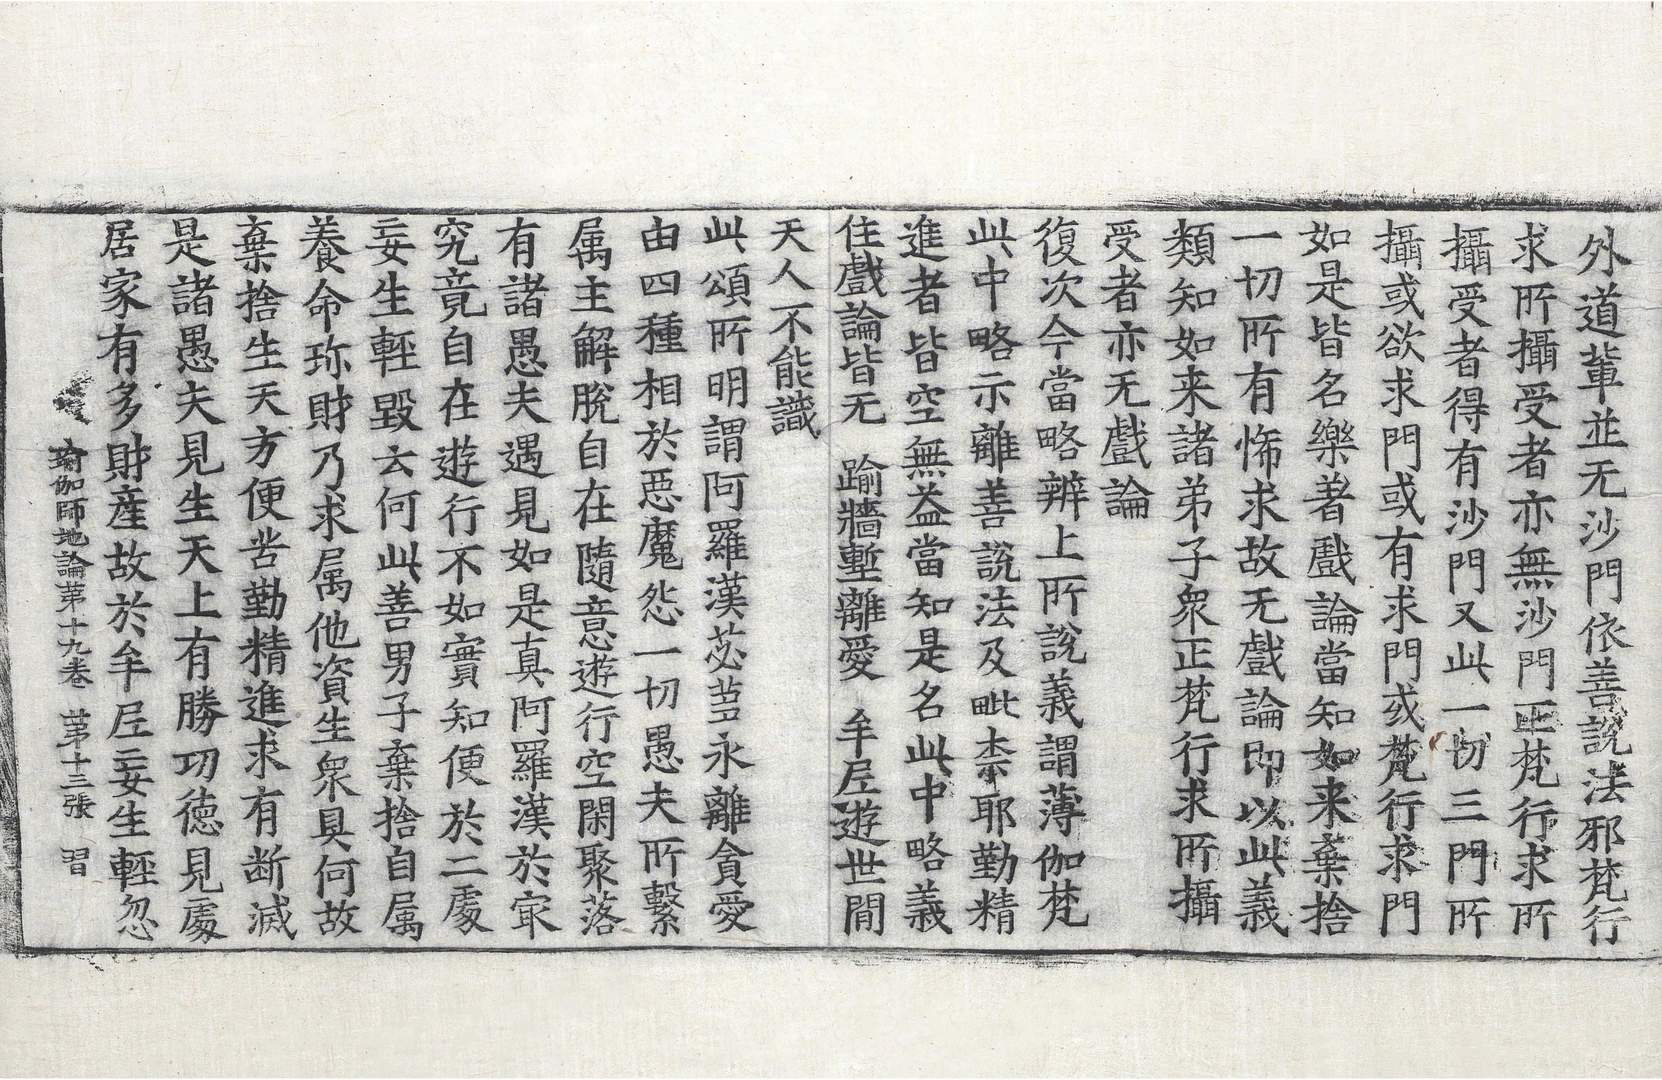 外道輩並无沙門依善說法邪梵行
求所攝受者亦無沙門正梵行求所
攝受者得有沙門又此一切三門所
攝或欲求門或有求門或梵行求門
如是皆名樂著戲論當知如来棄捨
一切所有悕求故无戲論即以此義
類知如来諸弟子衆正梵行求所攝
受者亦无戲論
復次今當略辨上所說義謂薄伽梵
此中略示離善說法及毗柰耶勤精
進者皆空無益當知是名此中略義
住戲論皆无　踰牆塹離愛　牟尼遊世間
天人不能識
此頌所明謂阿羅漢苾芻永離貪愛
由四種相於惡魔怨一切愚夫所繫
属主解脫自在隨意遊行空閑聚落
有諸愚夫遇見如是真阿羅漢於㝡
究竟自在遊行不如實知便於二處
妄生輕毀云何此善男子棄捨自属
養命珎財乃求属他資生衆具何故
棄捨生天方便苦勤精進求有断滅
是諸愚夫見生天上有勝功德見處
居家有多財產故於牟尼妄生輕忽
瑜伽師地論第十九卷　第十三張　習